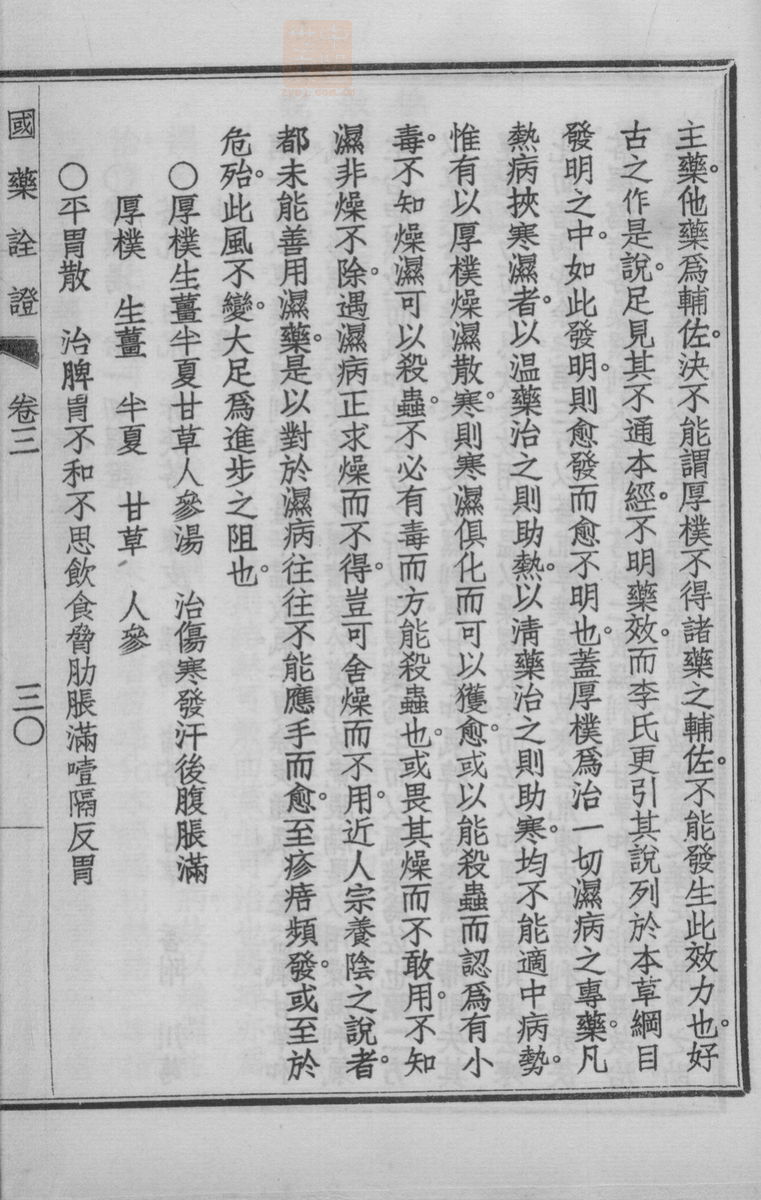 主藥。他藥爲輔佐。決不能謂厚樸不得諸藥之輔佐。不能發生此效力也。好
古之作是說。足見其不通本經。不明藥效。而李氏更引其說列於本草綱目
發明之中。如此發明。則愈發而愈不明也。蓋厚樸爲治一切濕病之專藥。凡
熱病挾寒濕者。以温藥治之則助熱。以淸藥治之則助寒。均不能適中病勢。
惟有以厚樸燥濕散寒。則寒濕俱化而可以獲愈。或以能殺蟲而認爲有小
毒。不知燥濕可以殺蟲。不必有毒而方能殺蟲也。或畏其燥而不敢用。不知
濕非燥不除。遇濕病正求燥而不得。豈可舍燥而不用。近人宗養陰之說者。
都未能善用濕藥。是以對於濕病往往不能應手而愈。至疹㾦頻發。或至於
危殆。此風不變。大足爲進步之阻也。
〇厚樸生薑半夏甘草人參湯 治傷寒發汗後腹脹滿
厚樸 生薑 半夏 甘草 人參
〇平胃散 治脾胃不和不思飲食脅肋脹滿噎隔反胃
國藥詮證 卷三 三〇